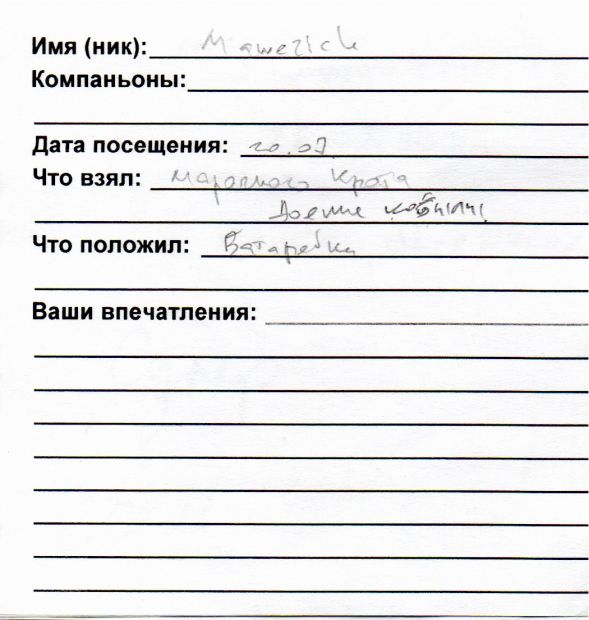 Имя (ник): Mawerick
Компаньоны:
Дата посещения: 20.07
Что взял: марочного крота
Что положил: Батарейки
Ваши впечатления: